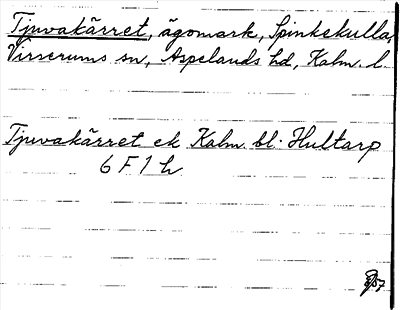 Tjuvakärret, ägomark, Spinkekulla,
Virserums sn, Aspelands hd, Kalm. l.
Tjuvakärret ek Kalm. bl: Hultarp
6 F 1 h
57